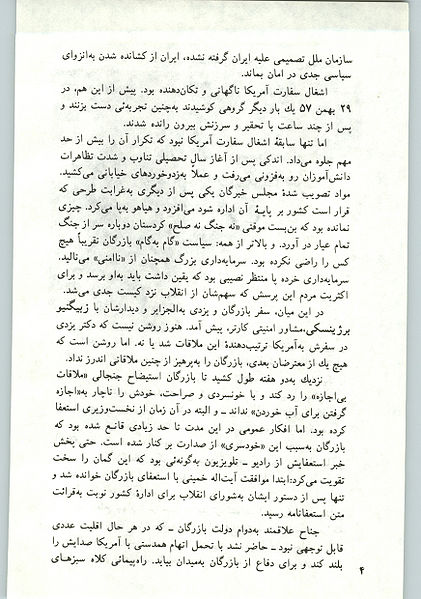 سازمان ملل تصمیمی علیه ایران گرفته نشده، ایران از کشانده شدن به‌انزوای
سیاسی جدی در امان بماند.
اشغال سفارت آمریکا ناگهانی و تکان‌دهنده بود. پیش از این هم، در
۲۹ بهمن ۵۷ یك بار دیگر گروهی کوشیدند به‌چنین تجربه‌ئی دست بزنند و
پس از چند ساعت با تحقیر و سرزنش بیرون رانده شدند.
اما تنها سابقهٔ اشغال سفارت آمریکا نبود که تکرار آن را بیش از حد
مهم جلوه می‌داد. اندکی پس از آغاز سال تحصیلی تناوب و شدت تظاهرات
دانش‌آموزان رو به‌فزونی می‌رفت و عملاً به‌زدوخوردهای خیابانی می‌کشید.
مواد تصویب شدهٔ مجلس خبرگان یکی پس از دیگری به‌غرابت طرحی که
قرار است کشور بر پایهٔ آن اداره شود می‌افزود و هیاهو به‌پا می‌کرد. چیزی
نمانده بود که بن‌بست موقتی «نه جنگ نه صلح» کردستان دوباره سر از جنگ
تمام عیار در آورد. و بالاتر از همه: سیاست «گام به‌گام» بازرگان تقریباً هیچ
کس را راضی نکرده بود. سرمایه‌داری بزرگ همچنان از «ناامنی» می‌نالید.
سرمایه‌داری خرده پا منتظر نصیبی بود که یقین داشت باید به‌او برسد و برای
اکثریت مردم این پرسش که سهم‌شان از انقلاب نزد کیست جدی می‌شد.
در این میان، سفر بازرگان و یزدی به‌الجزایر و دیدارشان با زبیگنیو
برژینسکی،مشاور امنیتی کارتر، پیش آمد. هنوز روشن نیست که دکتر یزدی
در سفرش به‌آمریکا ترتیب‌دهندهٔ این ملاقات شد یا نه. اما روشن است که
هیچ یك از معترضان بعدی، بازرگان را به‌پرهیز از چنین ملاقاتی اندرز نداد.
نزدیك به‌دو هفته طول کشید تا بازرگان استیضاح جنجالی «ملاقات
بی‌اجازه» را رد کند و با خونسردی و صراحت، خودش را ناچار به‌«اجازه
گرفتن برای آب خوردن» نداند ـ و البته در آن زمان از نخست‌وزیری استعفا
کرده بود. اما افکار عمومی در این مدت تا حد زیادی قانع شده بود که
بازرگان به‌سبب این «خودسری» از صدارت بر کنار شده است. حتی پخش
خبر استعفایش از رادیو ـ تلویزیون به‌گونه‌ئی بود که این گمان را سخت
تقویت می‌کرد:ابتدا موافقت آیت‌اله خمینی با استعفای بازرگان خوانده شد و
تنها پس از دستور ایشان به‌شورای انقلاب برای ادارهٔ کشور نوبت به‌قرائت
متن استعفانامه رسید.
جناح علاقمند به‌دوام دولت بازرگان ـ که در هر حال اقلیت عددی
قابل توجهی نبود ـ حاضر نشد با تحمل اتهام همدستی با آمریکا صدایش را
بلند کند و برای دفاع از بازرگان به‌میدان بیاید. راه‌پیمائی کلاه سبزهای
۴